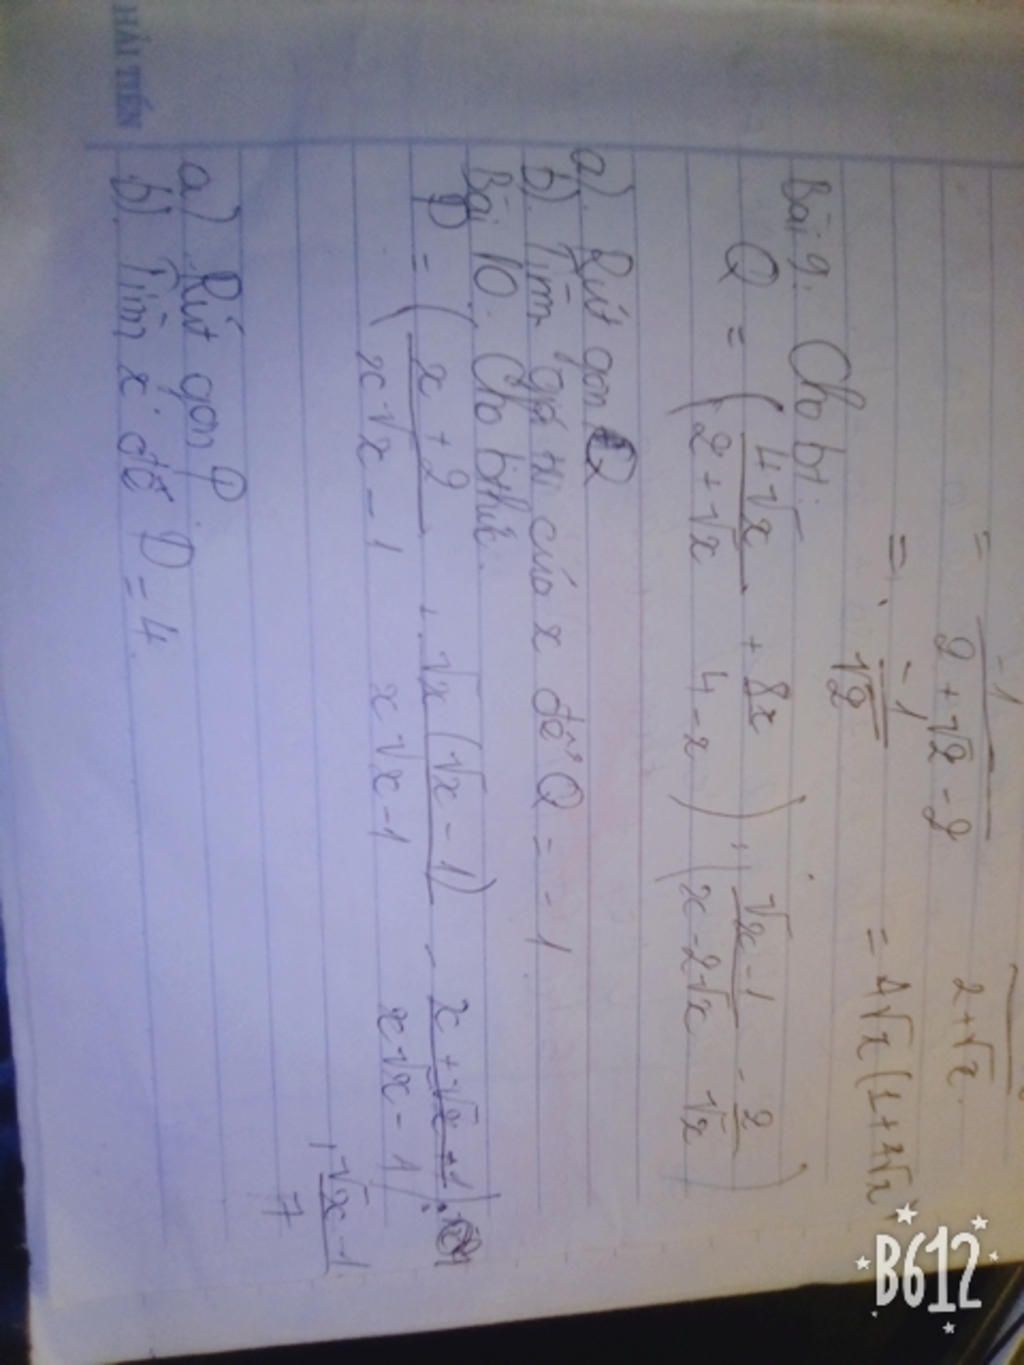 = -1 / 2+√2-2
2+√x
= -1 / √2
= 4√x(1+2√x
Bài 9. Cho bt:
Q = (4√x / 2+√x + 8x / 4-x) : (√x-1 / x-2√x - 2 / √x)
a). Rút gọn Q
b). Tìm giá trị của x để Q = -1
Bài 10. Cho bthức.
P = (x+2 / x√x-1 + √x(√x-1) / x√x-1 - x+√x+1 / x√x-1) :
√x-1 / 7
a) Rút gọn P
b). Tìm x để P = 4.
HẢI TIẾN
B612